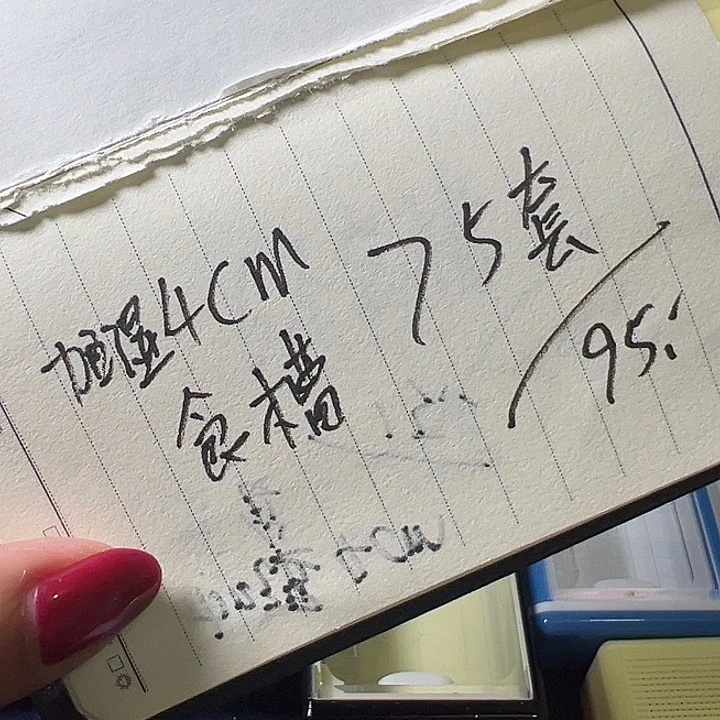 加湿4cm 75套
食槽 /95: